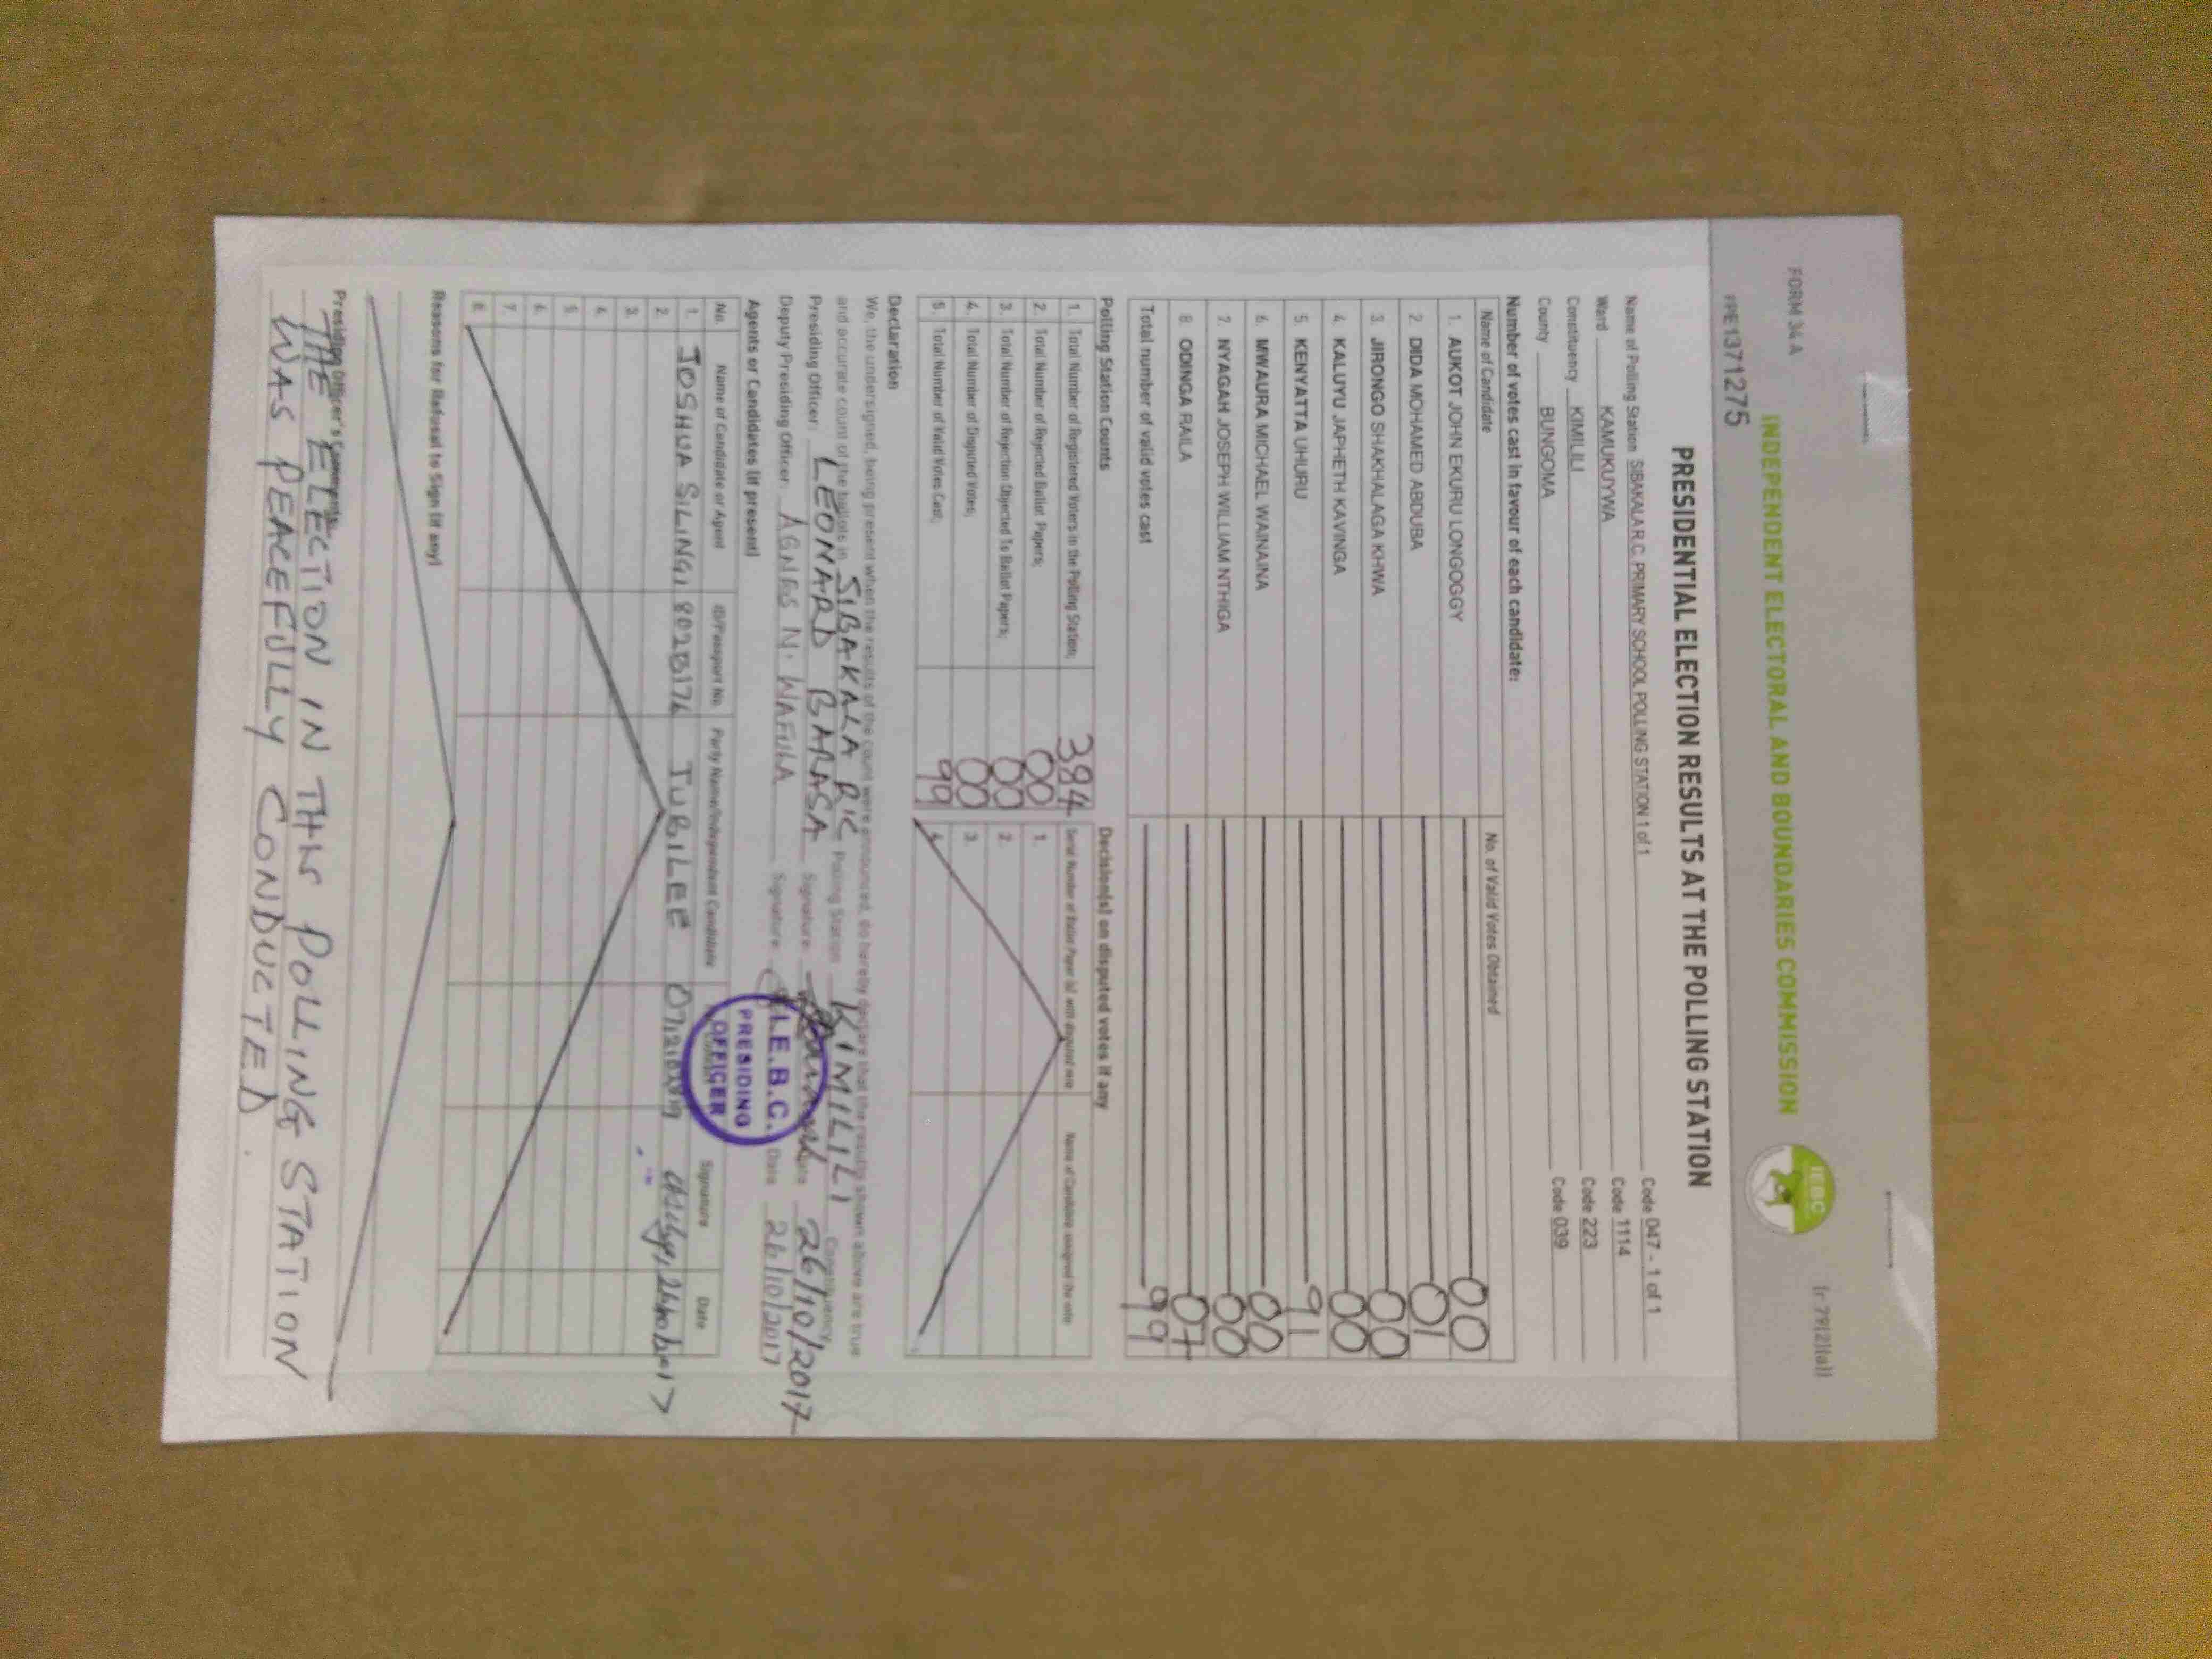 FORM 34 A
(r 79(2)(a))
INDEPENDENT ELECTORAL AND BOUNDARIES COMMISSION
IEBC
PPE1371275
PRESIDENTIAL ELECTION RESULTS AT THE POLLING STATION
Name of Polling Station SIBAKALA R.C. PRIMARY SCHOOL POLLING STATION 1 of 1 Code 047 - 1 of 1
Ward KAMUKUYWA Code 1114
Constituency KIMILILI Code 223
County BUNGOMA Code 039
Number of votes cast in favour of each candidate:
Name of Candidate No. of Valid Votes Obtained
1. AUKOT JOHN EKURU LONGOGGY 00
2. DIDA MOHAMED ABDUBA 01
3. JIRONGO SHAKHALAGA KHWA 00
4. KALUYU JAPHETH KAVINGA 00
5. KENYATTA UHURU 91
6. MWAURA MICHAEL WAINAINA 00
7. NYAGAH JOSEPH WILLIAM NTHIGA 00
8. ODINGA RAILA 07
Total number of valid votes cast 99
Polling Station Counts Decision(s) on disputed votes if any
1. Total Number of Registered Voters in the Polling Station; 384 Serial Number of Ballot Paper (s) with disputed vote Name of Candidate assigned the vote
2. Total Number of Rejected Ballot Papers; 00 1.
3. Total Number of Rejection Objected To Ballot Papers; 00 2.
4. Total Number of Disputed Votes; 00 3.
5. Total Number of Valid Votes Cast; 99 4.
Declaration
We, the undersigned, being present when the results of the count were announced, do hereby declare that the results shown above are true
and accurate count of the ballots in SIBAKALA R/C Polling Station KIMILILI Constituency
Presiding Officer: LEONARD BARASA Signature Date 26/10/2017
Deputy Presiding Officer: AGNES N. WAFULA Signature Date 26/10/2017
I.E.B.C.
PRESIDING
OFFICER
Agents or Candidates (if present)
No. Name of Candidate or Agent ID/Passport No. Party Name/Independent Candidate Signature Date
1. JOSHUA SILINGI JUBILEE
2.
3.
4.
5.
6.
7.
8.
Reasons for Refusal to Sign (if any)
Presiding Officer's Comments:
THE ELECTION IN THIS POLLING STATION
WAS PEACEFULLY CONDUCTED.